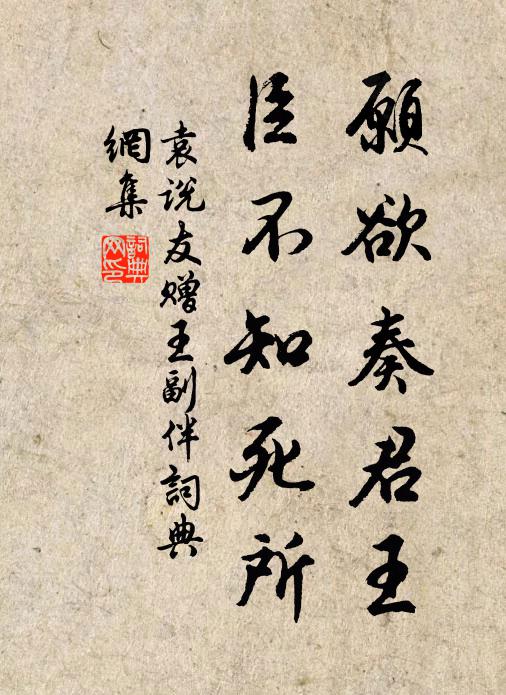 願欲奏君王
臣不知死所
袁说友赠王副伴詞典
網集
詞典
网印